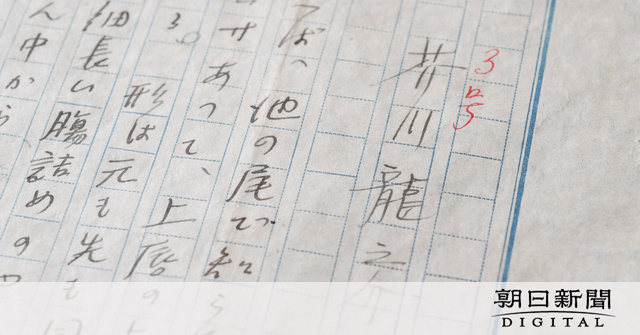 3号
芥川龍之介
ば、池の尾で知ら
寸あって、上唇の
る。形は元も先も同
細長い腸詰めの
ん中から
朝日新聞
DIGITAL